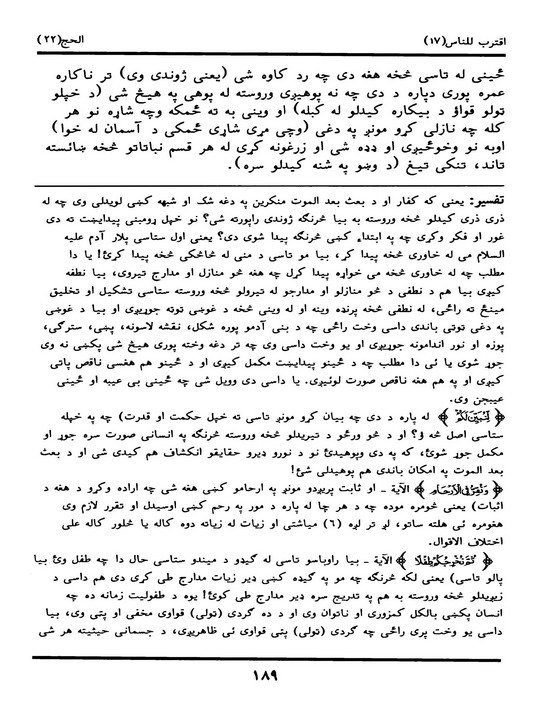 اقترب للناس(۱۷)
الحج(۲۲)
ځيني له تاسې څخه هغه دي چه رد كاوه شي (يعني ژوندى وي) تر ناكاره
عمره پورې دپاره د دې چه نه پوهيږي وروسته له پوهې په هيڅ شي (د خپلو
ټولو قواؤ د بيكاره كيدلو له كبله) او وينې به ته ځمكه وچه شاړه نو هر
كله چه نازلې كړو مونږ په دغې (وچې مړې شاړې ځمكې د آسمان له خوا)
اوبه نو وخوځيږي او وده شي او زرغونه كړي له هر قسم نباتاتو څخه ښائسته
تاند، تنكى تيغ (د وښو په شنه كيدلو سره).
تفسير: يعني كه كفار او د بعث بعد الموت منكرين په دغه شك او شبهه كښې لويدلي وي چه له
ذرې ذرې كيدلو څخه وروسته به بيا څرنګه ژوندي راپورته شي؟ نو خپل ړومبنى پيدايښت ته دې
غور او فكر وكړي چه په ابتداء كښې څرنګه پيدا شوي دي؟ يعني اول ستاسې پلار آدم عليه
السلام مې له خاورې څخه پيدا كړ، بيا مو تاسې د منې له څاڅكي څخه پيدا كړئ! يا دا
مطلب چه له خاورې څخه مې خواړه پيدا كړل چه هغه څو منازل او مدارج تيروي، بيا نطفه
كيږي بيا هم د نطفې د څو منازلو او مدارجو له تيرولو څخه وروسته ستاسې تشكيل او تخليق
مينځ ته راځي، له نطفې څخه پرنډه وينه او له وينې څخه د غوښې ټوټه جوړيږي او بيا د غوښې
په دغې ټوټې باندې داسې وخت راځي چه د بني آدمو پوره شكل، نقشه لاسونه، پښې، سترګې،
پوزه او نور اندامونه جوړيږي او يو وخت داسې وي چه تر دغه وخته پورې هيڅ شى پكښې نه وي
جوړ شوى يا ئې دا مطلب چه د ځينو پيدايښت مكمل كيږي او د ځينو هم هغسې ناقص پاتې
كيږي او په هم هغه ناقص صورت لوئيږي. يا داسې دې وويل شي چه ځينې بې عيبه او ځينې
عيبجن وي.
﴿ لِّنُبَيِّنَ لَكُمْ ﴾ له پاره د دې چه بيان كړو مونږ تاسې ته خپل حكمت او قدرت) چه په خپله
ستاسې اصل څه ؤ؟ او د څو ورځو د تيريدلو څخه وروسته څرنګه په انساني صورت سره جوړ او
مكمل جوړ شوئ، كه په دې وپوهيدئ نو د نورو ډيرو حقايقو انكشاف هم كيدى شي او د بعث
بعد الموت په امكان باندې هم پوهيدلى شئ!
﴿ وَنُقِرُّ فِي الْأَرْحَامِ ﴾ الآية ـ او ثابت پريږدو مونږ په ارحامو كښې هغه شى چې اراده وكړو د هغه د
اثبات) يعني څومره موده چه د هر چا له پاره د مور په رحم كښې اوسيدل او تقرر لازم وي
هغومره ئې هلته ساتو، لږ تر لږه (۶) مياشتې او زيات له زياته دوه كاله يا څلور كاله على
اختلاف الاقوال.
﴿ ثُمَّ نُخْرِجُكُمْ طِفْلًا ﴾ الآية ـ بيا راوباسو تاسې له ګيډو د ميندو ستاسې حال دا چه طفل وئ بيا
پالو تاسې) يعنې لكه څرنګه چه مو په ګيډه كښې ډير زيات مدارج طى كړي دي هم داسې د
زيږيدلو څخه وروسته به هم په تدريج سره ډير مدارج طى كوئ! يوه د طفوليت زمانه ده چه
انسان پكښې بالكل كمزورى او ناتوان وي او د ده ګردې (ټولې) قواوې مخفي او پټې وي، بيا
داسې يو وخت پرې راځي چه ګردې (ټولې) پټې قواوې ئې ظاهريږي، د جسماني حيثيته هر شى
۱۸۹